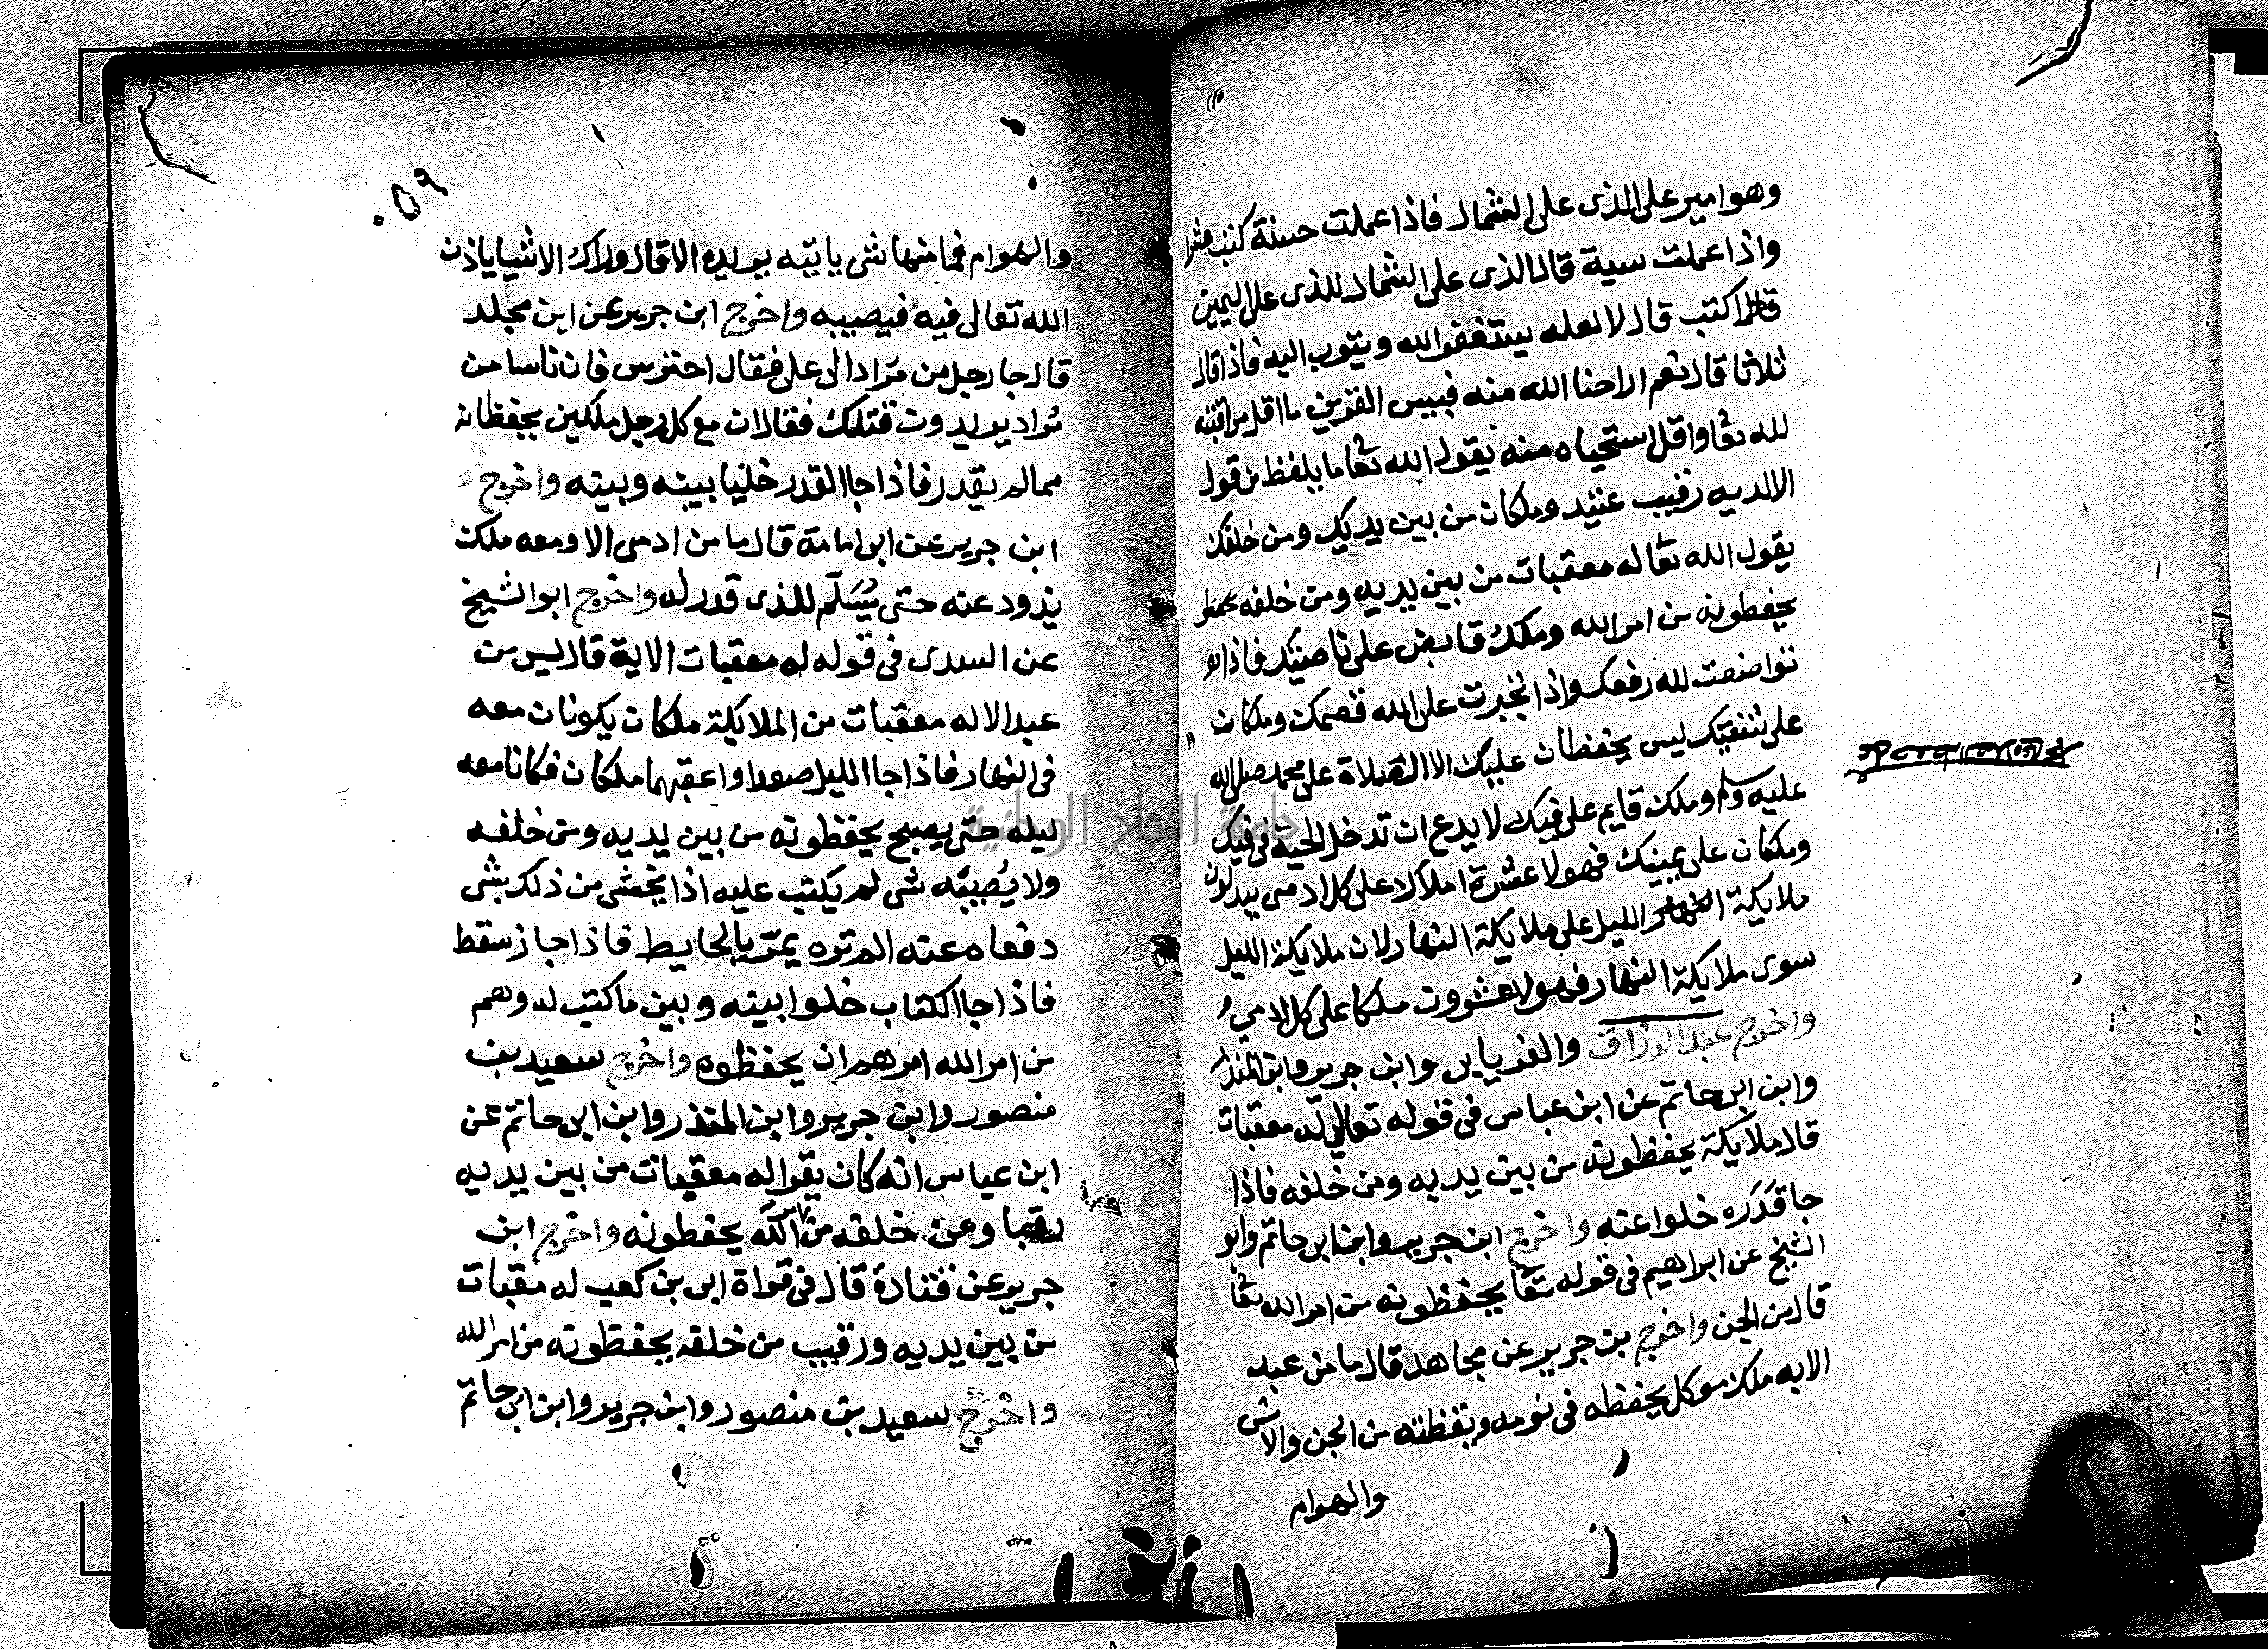 وهو امير على الذى على الشمال فاذا عملت حسنة كتبت عشرا
واذا عملت سية قال الذى على الشمال للذى على اليمين
قال اكتب قال لا لعله يستغفر الله ويتوب اليه فاذا قال
ثلاثا قال نعم اراحنا الله منه فبيس القرين ما اقل مراقبته
لله تعا واقل استحياه منه يقول الله تعا ما يلفظ من قول
الا لديه رقيب عتيد وملكان من بين يديك ومن خلفك
يقول الله تعا له معقبات من بين يديه ومن خلفه
يحفظونه من امر الله وملك قابض على ناصيتك فاذا
تواضعت لله رفعك واذا تجبرت على الله قصمك وملكان
على شفتيك ليس يحفظان عليك الا الصلاة على محمد صلى الله
عليه وسلم وملك قايم على فيك لا يدع ان تدخل الحية في فيك
وملكان على عينيك فهولا عشرة املاك على كل ادمى يبدلون
ملايكة الليل على ملايكة النهار لان ملايكة الليل
سوى ملايكة النهار فهولا عشرون ملكا على كل ادمي
واخرج عبد الرزاق والفريابى وابن جرير وابن المنذر
وابن ابى حاتم عن ابن عباس فى قوله تعالى له معقبات
قال ملايكة يحفظونه من بين يديه ومن خلفه فاذا
جا قدره خلوا عنه واخرج ابن جرير وابن ابى حاتم وابو
الشيخ عن ابراهيم فى قوله تعا يحفظونه من امر الله تعا
قال من الجن واخرج بن جرير عن مجاهد قال ما من عبد
الا به ملك موكل يحفظه فى نومه ويقظته من الجن والانس
والهوام
٥٩
والهوام فما منها شى ياتيه يريده الا قال وراك الا شيا ياذن
الله تعالى فيه فيصيبه واخرج ابن جرير عن ابن مجلد
قال جا رجل من مراد الى على فقال احترس فان ناسا من
مراد يريدون قتلك فقال ان مع كل رجل ملكين يحفظانه
مما لم يقدر فاذا جا القدر خليا بينه وبينه واخرج
ابن جرير عن ابى امامة قال ما من ادمى الا ومعه ملك
يذود عنه حتى يسلم للذى قدر له واخرج ابو الشيخ
عن السدى فى قوله له معقبات الاية قال ليس من
عبد الا له معقبات من الملايكة ملكان يكونان معه
فى النهار فاذا جا الليل صعدا واعقبهما ملكان فكانا معه
ليله حتى يصبح يحفظونه من بين يديه ومن خلفه
ولا يصيبه شى لم يكتب عليه اذا يخشى من ذلك بشى
دفعاه عنه الم تره يمر بالحايط فاذا جاز سقط
فاذا جا الكتاب خلوا بينه وبين ما كتب له وهم
من امر الله امرهم ان يحفظوه واخرج سعيد بن
منصور وابن جرير وابن المنذر وابن ابى حاتم عن
ابن عباس انه كان يقرا له معقبات من بين يديه
رقبا ومن خلفه من امر الله يحفظونه واخرج ابن
جرير عن قتادة قال فى قراة ابى بن كعب له معقبات
من بين يديه ورقيب من خلفه يحفظونه من امر الله
واخرج سعيد بن منصور وابن جرير وابن ابى حاتم
جامعة النجاح الوطنية